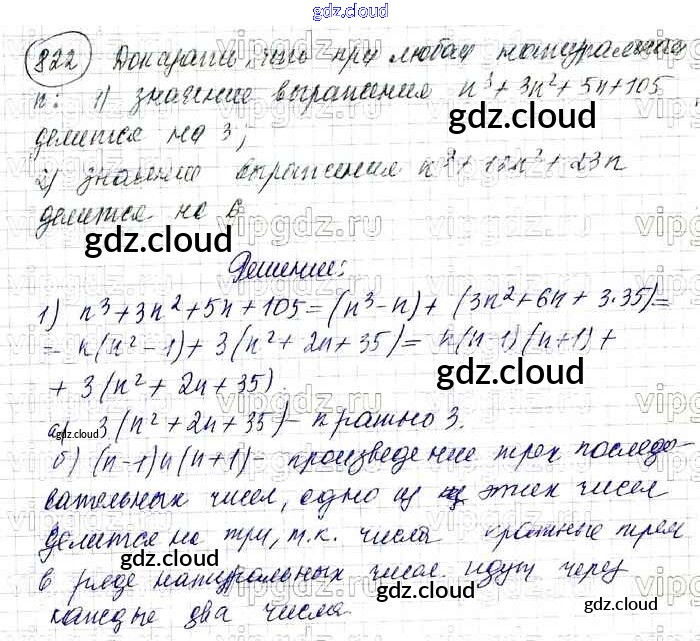 gdz.cloud
822 Доказать, что при любом натуральном
n: 1) значение выражения n³+3n²+5n+105
gdz.cloud
делится на 3;
2) значение выражения n³+ +23n
делится на 6
gdz.cloud
Решение:
1) n³+3n²+5n+105=(n³-n)+(3n²+6n+3·35)=
= n(n²-1)+3(n²+2n+35)= n(n-1)(n+1)+
+ 3(n²+2n+35).
gdz.cloud
а) 3(n²+2n+35)- кратно 3.
gdz.cloud
б) (n-1)n(n+1)- произведение трех последо-
вательных чисел, одно из этих чисел
делится на три, т.к. числа кратные трем
gdz.cloud
в ряде натуральных чисел идут через
каждые два числа.
gdz.cloud
gdz.cloud